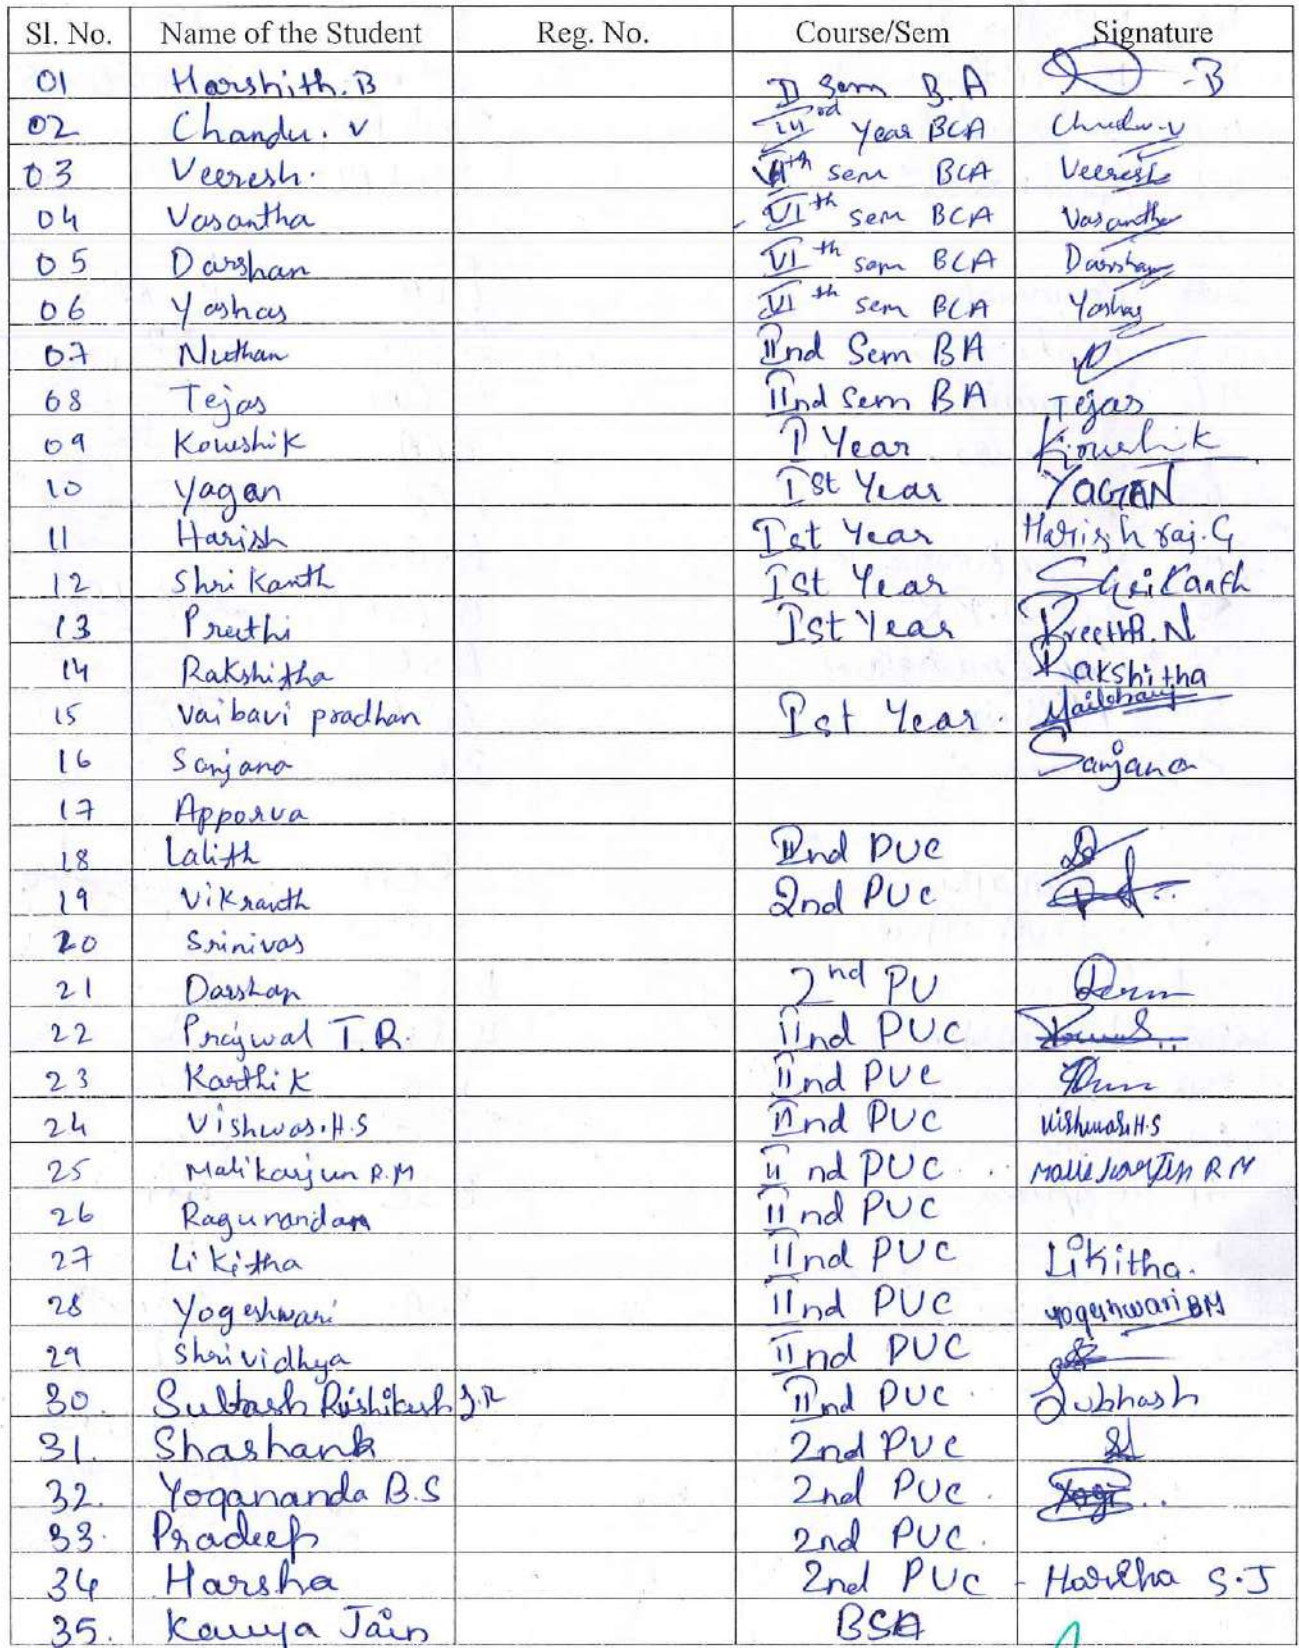 Sl. No. Name of the Student Reg. No. Course/Sem Signature
01 Harshith.B II Sem B.A -B
02 Chandu. V III rd Year BCA Chandu.V
03 Veeresh. VIth sem BCA Veeresh
04 Vasantha VIth sem BCA Vasantha
05 Darshan VIth sem BCA Darshan
06 Yashas VIth sem BCA Yashas
07 Nuthan IInd Sem BA
08 Tejas IInd Sem BA Tejas
09 Koushik I Year Koushik
10 Yagan Ist Year YAGAN
11 Harish Ist Year Harish raj.G
12 Shri Kanth Ist Year Shrikanth
13 Preethi Ist Year Preethi.N
14 Rakshitha Rakshitha
15 Vaibavi pradhan Ist Year.
16 Sanjana Sanjana
17 Apporva
18 Lalith IInd PUC
19 Vikranth 2nd PUC
20 Srinivas
21 Darshan 2nd PU
22 Prajwal T.R. IInd PUC
23 Karthik IInd PUC
24 Vishwas.H.S IInd PUC Vishwas.H.S
25 Malikarjun R.M II nd PUC Malikarjun R M
26 Ragunandan IInd PUC
27 Likitha IInd PUC Likitha.
28 Yogeshwari IInd PUC Yogeshwari BM
29 Shrividhya IInd PUC
30. Subash Rushikesh J.R IInd PUC Subhash
31. Shashank 2nd PUC
32. Yogananda B.S 2nd PUC. Yogi
33. Pradeep 2nd PUC.
34 Harsha 2nd PUC Harsha S.J
35. Kavya Jain